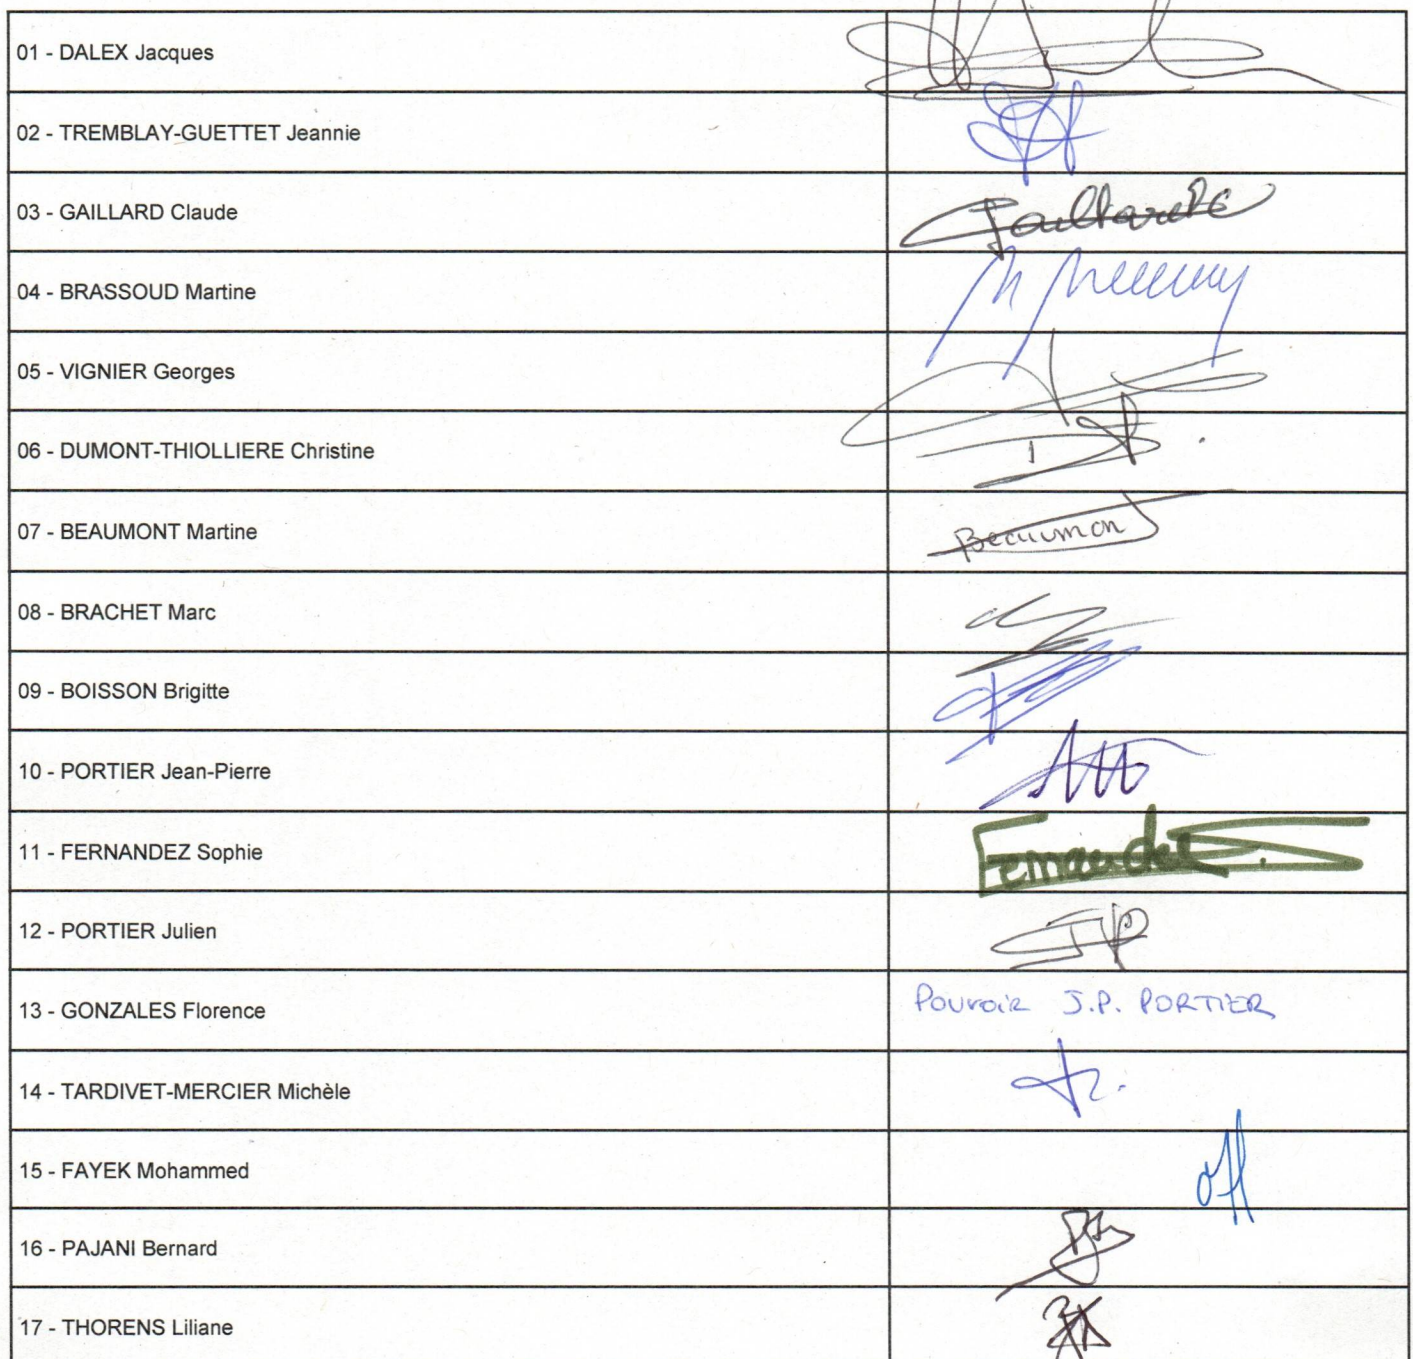 01 - DALEX Jacques
02 - TREMBLAY-GUETTET Jeannie
03 - GAILLARD Claude
04 - BRASSOUD Martine
05 - VIGNIER Georges
06 - DUMONT-THIOLLIERE Christine
07 - BEAUMONT Martine Beaumont
08 - BRACHET Marc
09 - BOISSON Brigitte
10 - PORTIER Jean-Pierre
11 - FERNANDEZ Sophie
12 - PORTIER Julien JP
13 - GONZALES Florence Pouvoir J.P. PORTIER
14 - TARDIVET-MERCIER Michèle
15 - FAYEK Mohammed
16 - PAJANI Bernard
17 - THORENS Liliane